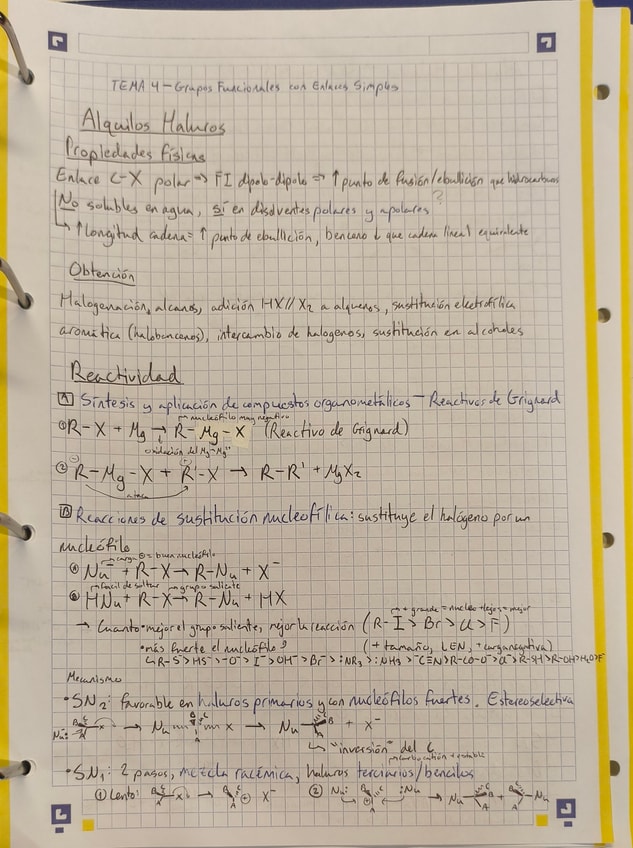 TEMA 4 - Grupos Funcionales con Enlaces Simples
Alquilos Haluros
Propiedades físicas
Enlace C-X polar => FI dipolo-dipolo => ↑ punto de fusión/ebullición que hidrocarburos
No solubles en agua, sí en disolventes polares y apolares ?
↳ ↑ longitud cadena = ↑ punto de ebullición, benceno ↓ que cadena lineal equivalente
Obtención
Halogenación alcanos, adición HX // X₂ a alquenos, sustitución electrofílica
aromática (halobencenos), intercambio de halogenos, sustitución en alcoholes
Reactividad
A Síntesis y aplicación de compuestos organometálicos - Reactivos de Grignard
→ nucleófilo muy negativo
① R-X + Mg → R-Mg-X (Reactivo de Grignard)
oxidación del Mg→Mg"
② R-Mg-X + R'-X → R-R' + MgX₂
ataca
B Reacciones de sustitución nucleofílica: sustituye el halógeno por un
nucleófilo
→ carga ⊖ = buen nucleófilo
Nu⁻ + R-X → R-Nu + X⁻
→ fácil de soltar → grupo saliente
HNu + R-X → R-Nu + HX
→ + grande = nucleo + lejos = mejor
→ Cuanto · mejor el grupo saliente, mejor la reacción (R-I > Br > Cl > F)
· más fuerte el nucleófilo (+ tamaño, ↓EN, + carga negativa)
↳ R-S⁻ > HS⁻ > -O⁻ > I⁻ > OH⁻ > Br⁻ > :NR₃ > :NH₃ > ⁻C≡N > R-CO-O⁻ > Cl⁻ > R-SH > R-OH > H₂O > F
Mecanismo
· SN₂: favorable en haluros primarios y con nucleófilos fuertes. Estereoselectiva
Nu: B C A X → Nu B C A X → Nu C B A + X⁻
↳ "inversión" del C
→ carbocatión + estable
· SN₁: 2 pasos, mezcla racémica, haluros terciarios/bencilos
① Lento: B C A X → B C A ⊕ X⁻ ② Nu: B C A ⊕ :Nu → Nu C B A + B C A Nu